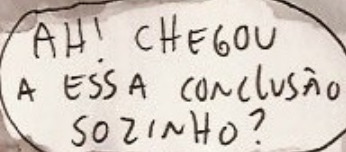 AH! CHEGOU
A ESSA CONCLUSÃO
SOZINHO?